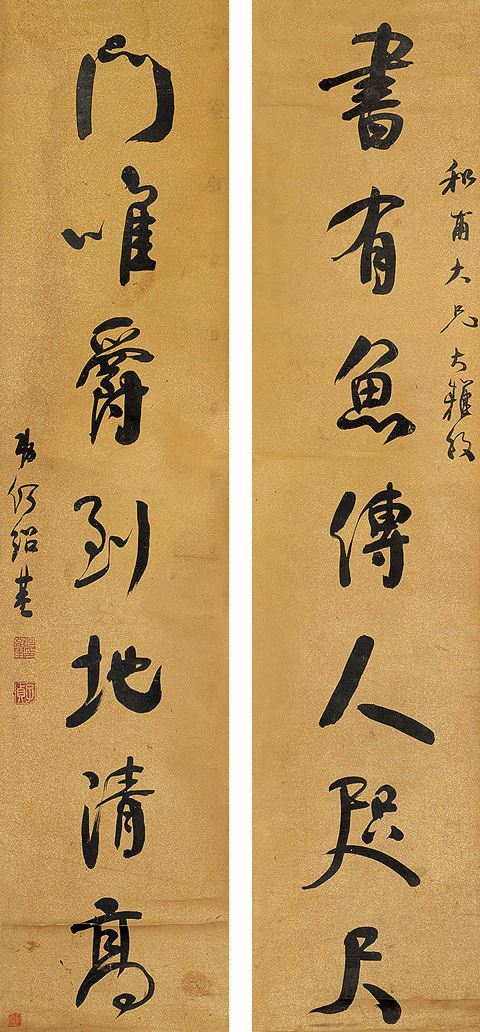 和甫大兄大雅政
書有魚傳人咫尺
門唯爵到地清高
何紹基
子貞